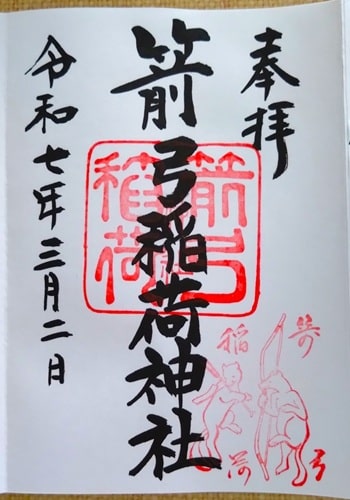 奉拝
箭弓稲荷神社
令和七年三月二日
箭弓
稲荷
箭弓
稲荷